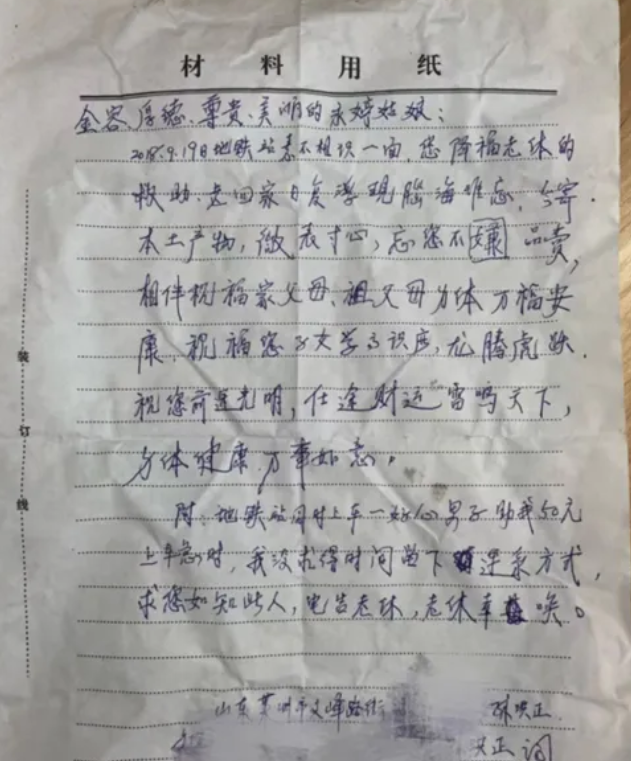 材料用纸
金容、厚德、尊贵、美丽的永婷姑娘:
2018.9.19日地铁站素不相识一面,您降福老休的
救助.老回家日复浮现脑海难忘,今寄.
本土产物,微表寸心,忘您不嫌 品卖,
相伴祝福家父母、祖父母身体万福安
康,祝福您子女学子识应,龙腾虎跃.
祝您前途光明,仕途财运雷鸣天下,
身体健康.万事如意。
附:地铁站同时上车一好心男子助我50元
上车急时,我没求得时间留下 逆系方式,
求您如知此人,电告老休,老休幸 唉。
山东莱州市文峰路街
洪正
装
订
线